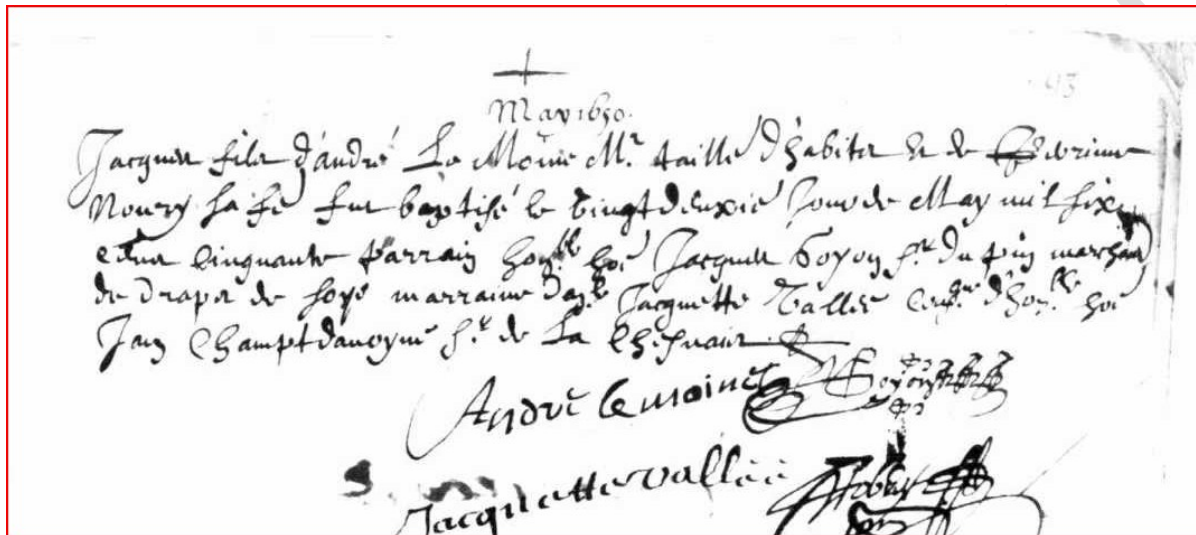 93
May 1650.
Jacques filz d'andré Le Moine Mr. taille d'habitz et de Perrine
Noury sa fe fut baptisé le vingt deuxie Jour de May mil six
centz cinquante parrain honble hoe Jacques Goyon sr. du pin marchand
de drapz de soye marraine dalle Jacquette Vallée d'honble hoe
Jan Champtdavoyne sr. de La Chesnaie
André Le moine Goyon
Jacquette vallëë